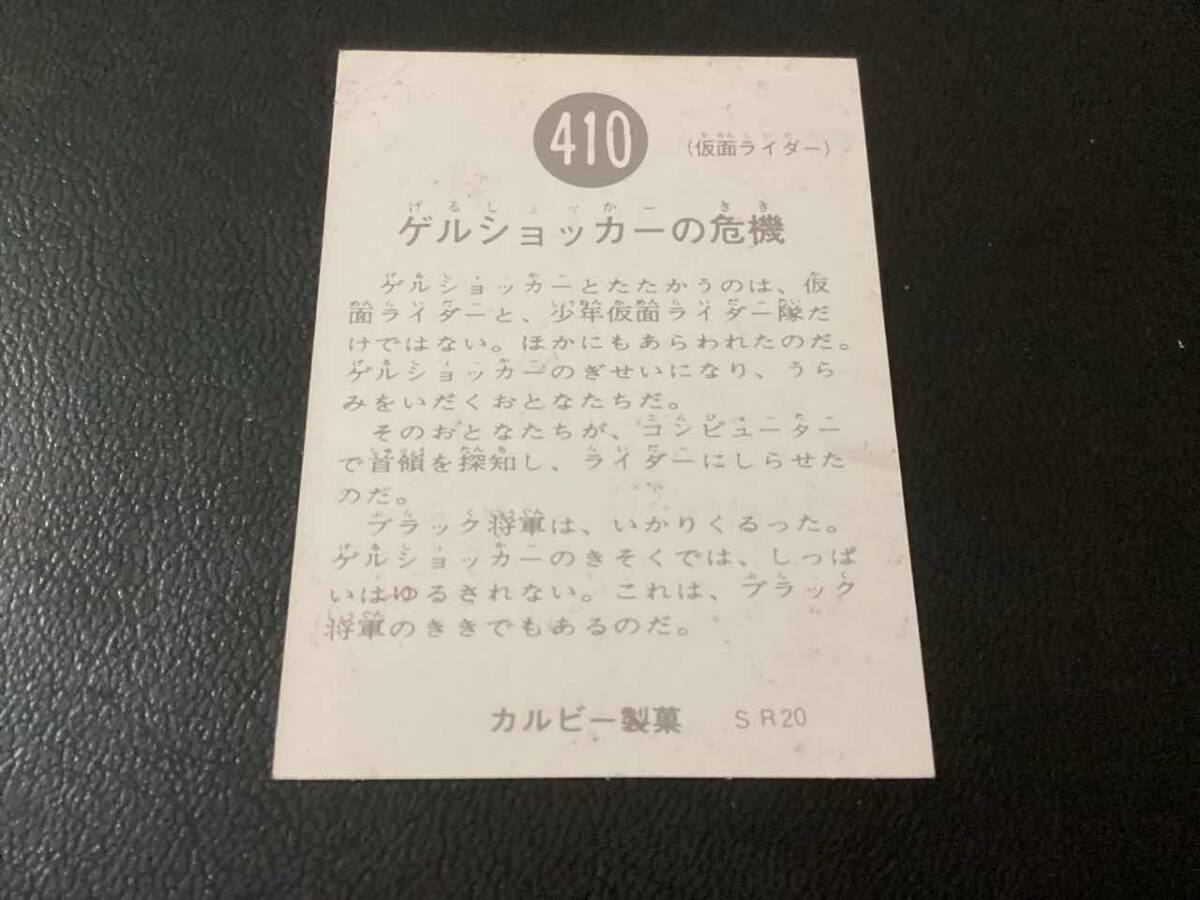 410
(仮面ライダー)
ゲルショッカーの危機
ゲルショッカーとたたかうのは、仮
面ライダーと、少年仮面ライダー隊だ
けではない。ほかにもあらわれたのだ。
ゲルショッカーのぎせいになり、うら
みをいだくおとなたちだ。
そのおとなたちが、コンピューター
で首領を探知し、ライダーにしらせた
のだ。
ブラック将軍は、いかりくるった。
ゲルショッカーのきそくでは、しっぱ
いはゆるされない。これは、ブラック
将軍のききでもあるのだ。
カルビー製菓 SR20